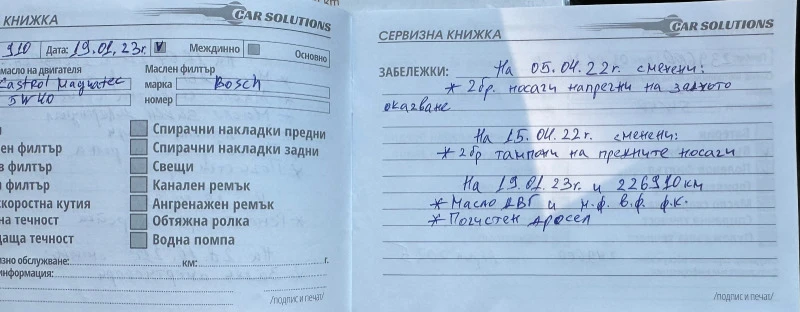 КНИЖКА
CAR SOLUTIONS
910 Дата: 19.01.23г. V Междинно Основно
масло на двигателя Маслен филтър
Castrol Magnatec марка Bosch
5W40 номер
Спирачни накладки предни
ен филтър Спирачни накладки задни
в филтър Свещи
филтър Канален ремък
скоростна кутия Ангренажен ремък
на течност Обтяжна ролка
даща течност Водна помпа
зно обслужване: км: г.
информация:
/подпис и печат/
СЕРВИЗНА КНИЖКА
CAR SOLUTIONS
ЗАБЕЛЕЖКИ: На 05.04.22г. сменени:
* 2бр. носачи напречни на задното
окачване
На 15.04.22г. сменени:
* 2бр тампони на предните носачи
На 19.01.23г. и 226910км
* Масло ДВГ и м.ф. в.ф. ф.к.
* Почистен дросел
/подпис и печат/